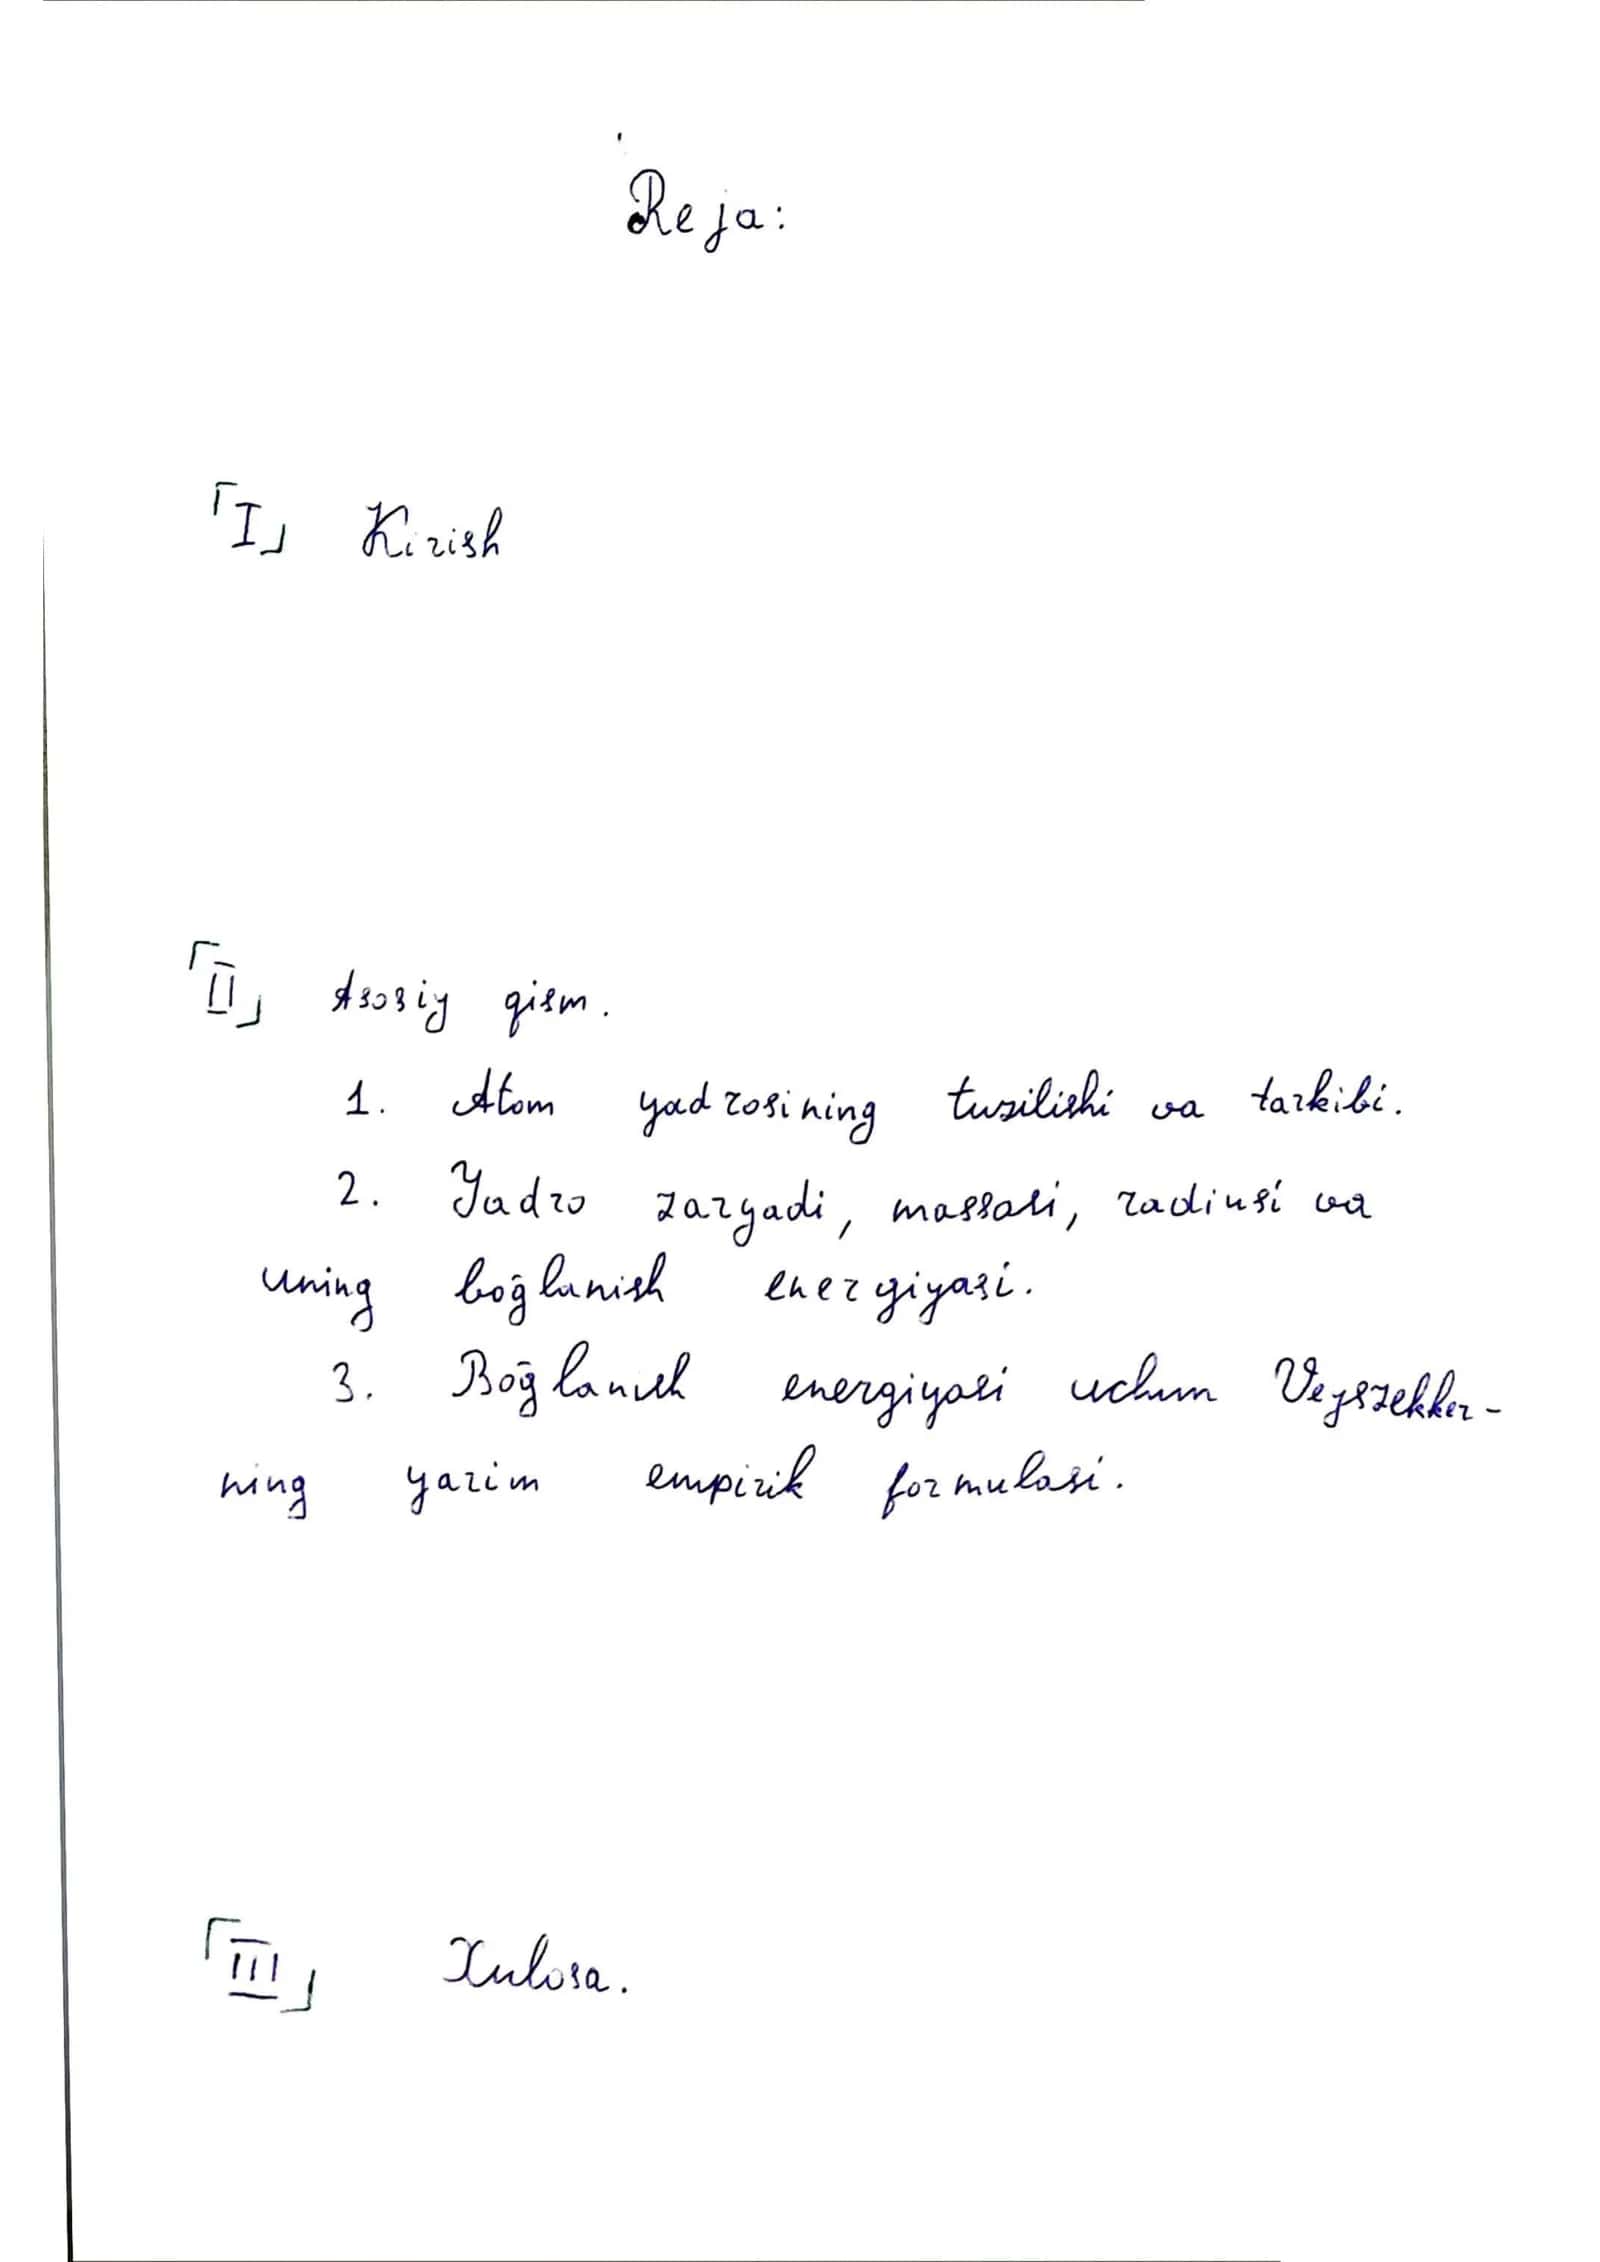 Reja:
「I」 Kirish
「II」 Asosiy qism.
1. Atom yadrosining tuzilishi va tarkibi.
2. Yadro zaryadi, massasi, radiusi va
uning bog̃lanish energiyasi.
3. Bog̃lanish energiyasi uchun Veyszekker-
ning yarim empirik formulasi.
「III」 Xulosa.